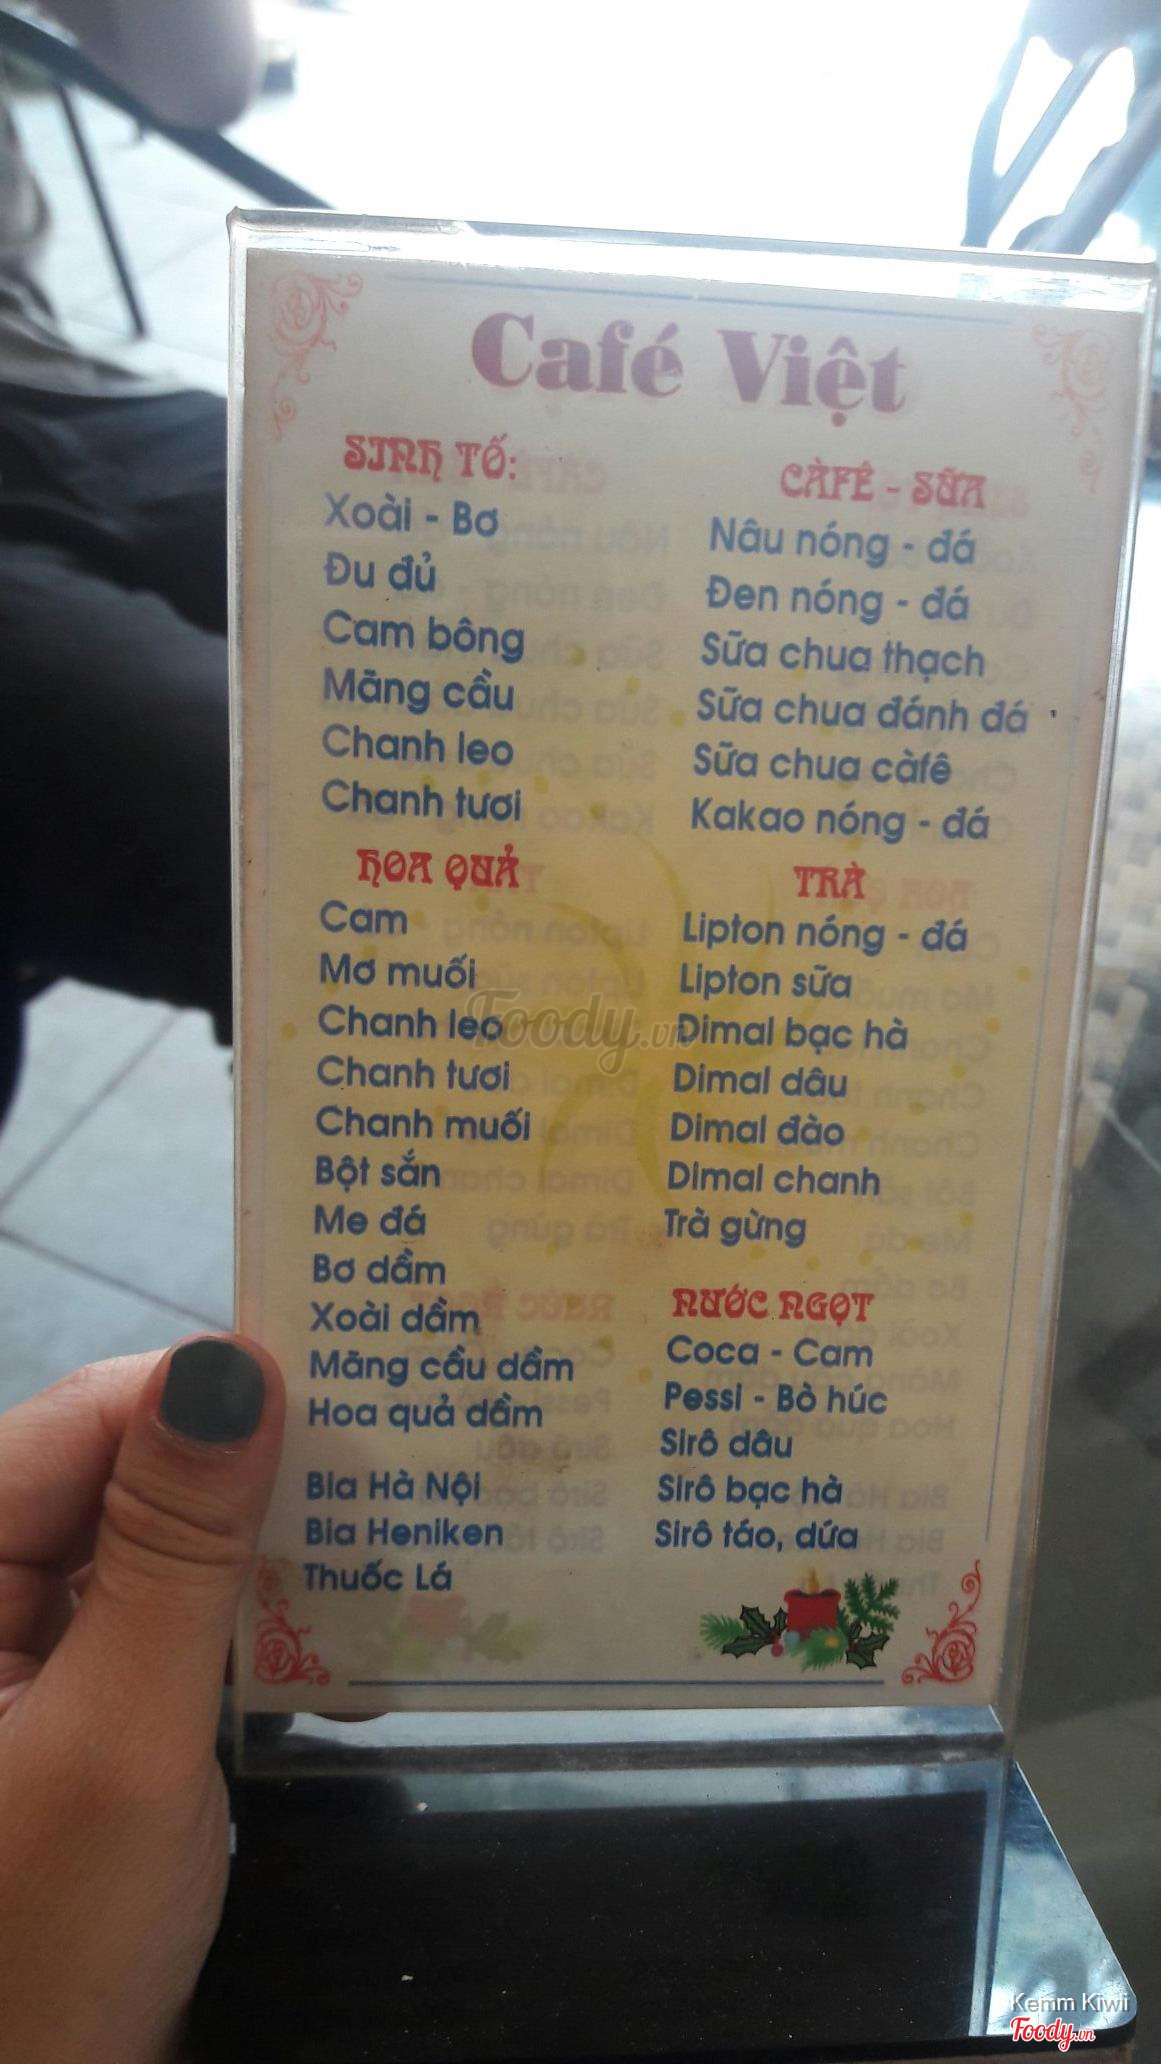 Café Việt
SINH TỐ:
Xoài - Bơ
Đu đủ
Cam bông
Mãng cầu
Chanh leo
Chanh tươi
HOA QUẢ
Cam
Mơ muối
Chanh leo
Chanh tươi
Chanh muối
Bột sắn
Me đá
Bơ dầm
Xoài dầm
Mãng cầu dầm
Hoa quả dầm
Bia Hà Nội
Bia Heniken
Thuốc Lá
CÀFÊ - SỮA
Nâu nóng - đá
Đen nóng - đá
Sữa chua thạch
Sữa chua đánh đá
Sữa chua càfê
Kakao nóng - đá
TRÀ
Lipton nóng - đá
Lipton sữa
Dimal bạc hà
Dimal dâu
Dimal đào
Dimal chanh
Trà gừng
NƯỚC NGỌT
Coca - Cam
Pessi - Bò húc
Sirô dâu
Sirô bạc hà
Sirô táo, dứa
Foody.vn
Kemm Kiwi
Foody.vn